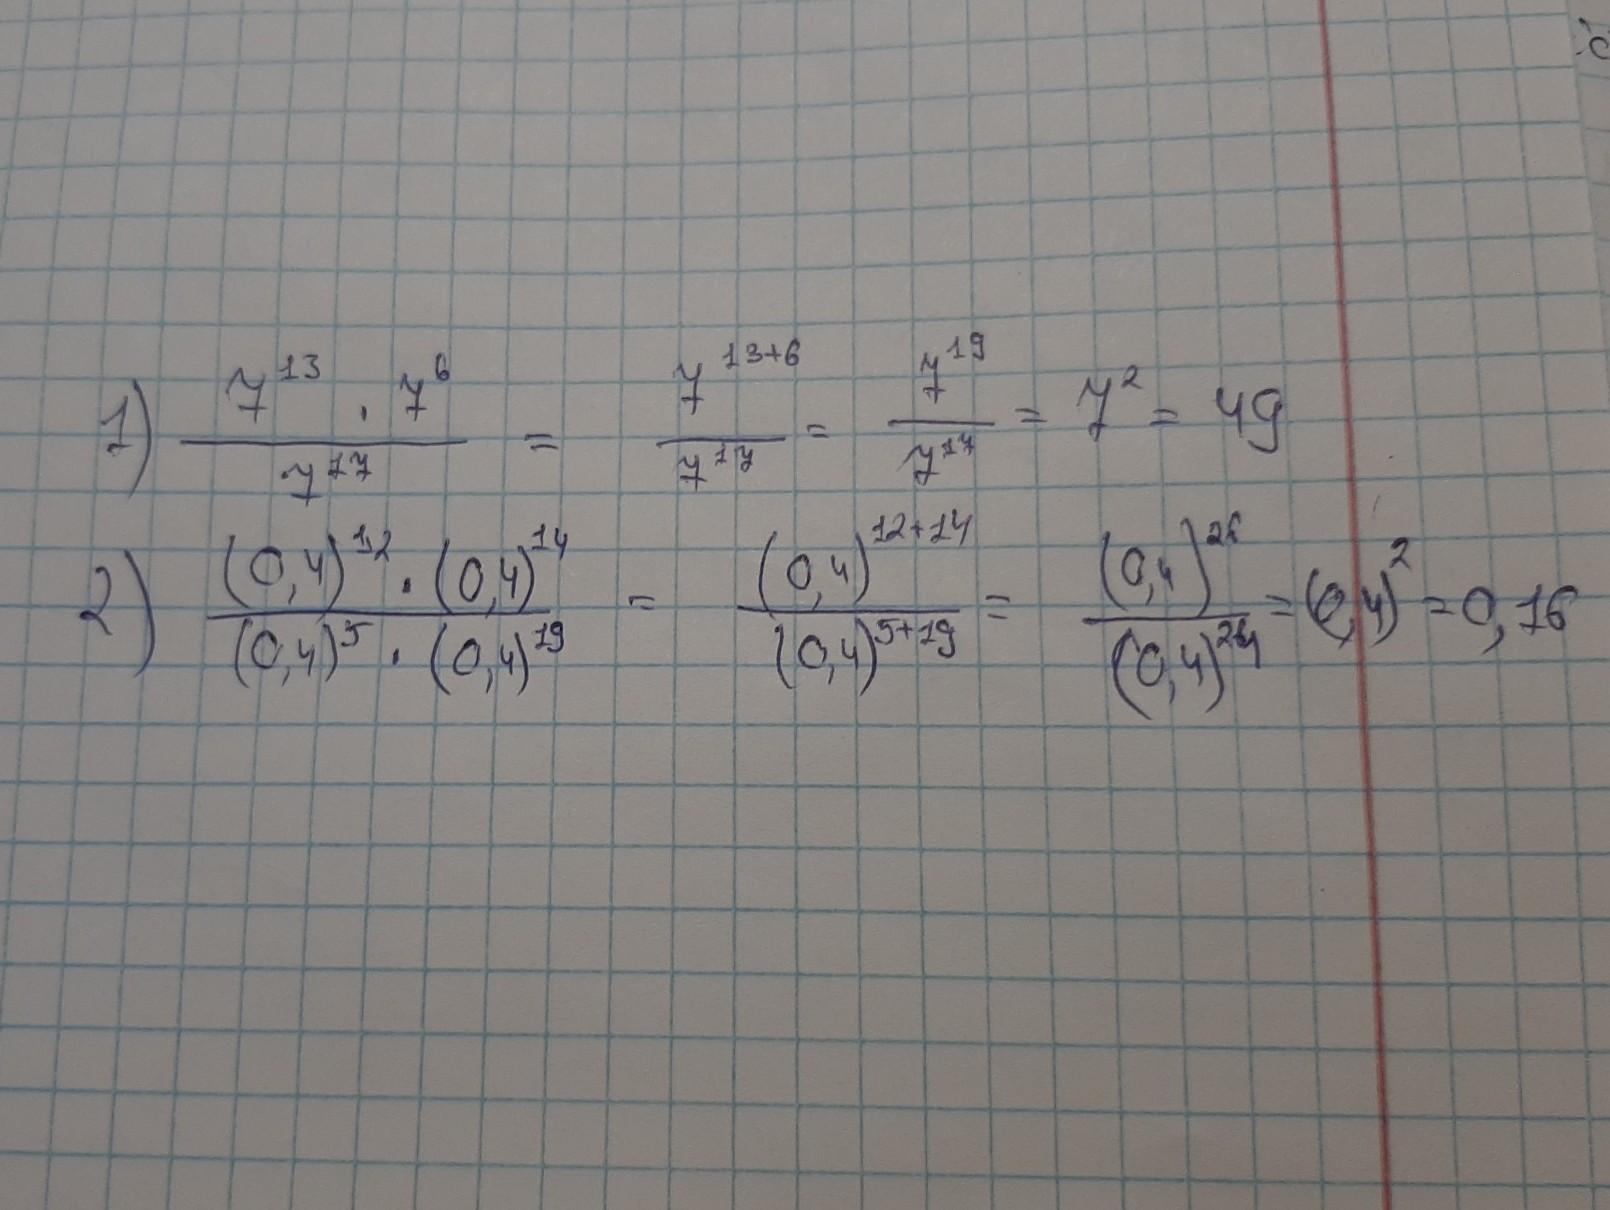 1) (7^13 · 7^6)/(7^17) = (7^(13+6))/(7^17) = (7^19)/(7^17) = 7^2 = 49
2) ((0,4)^12 · (0,4)^14)/((0,4)^5 · (0,4)^19) = ((0,4)^(12+14))/((0,4)^(5+19)) = ((0,4)^26)/((0,4)^24) = (0,4)^2 = 0,16